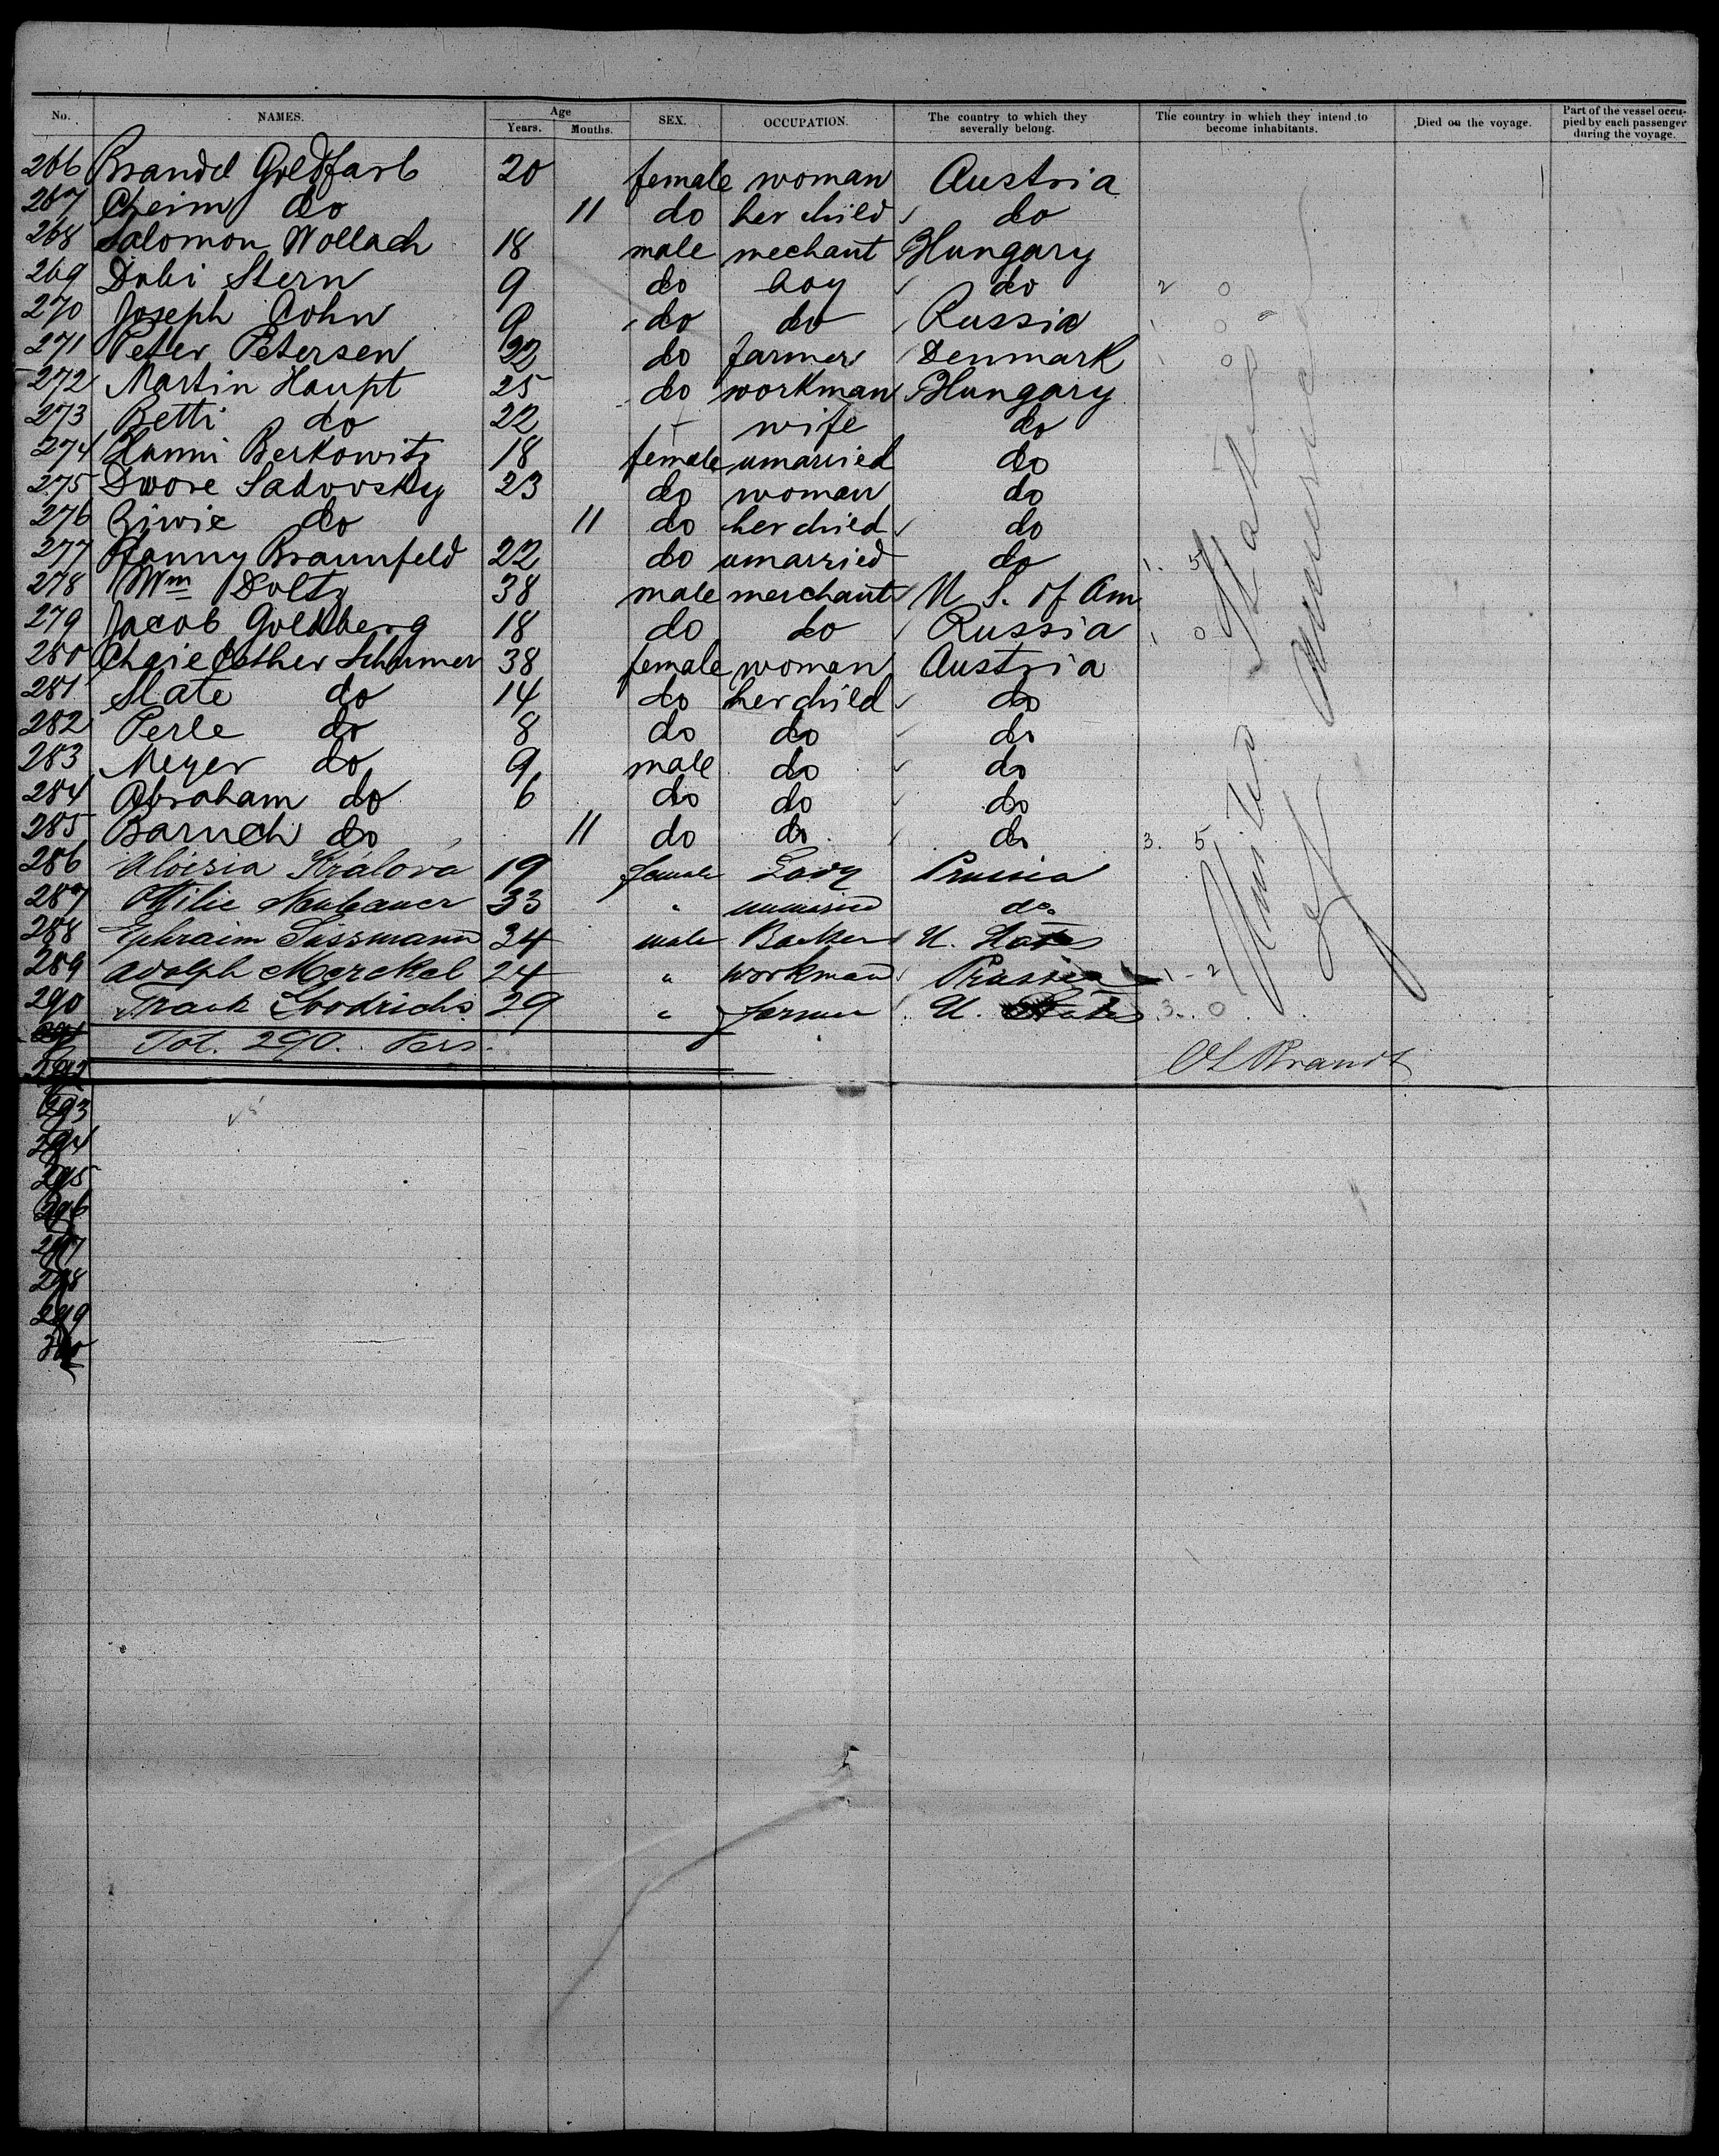 No. NAMES. Age Years. Months. SEX. OCCUPATION. The country to which they severally belong. The country in which they intend to become inhabitants. Died on the voyage. Part of the vessel occupied by each passenger during the voyage.
266 Brandel Goldfarb 20 female woman Austria
267 Cheim do 11 do her child do
268 Salomon Wollach 18 male mechant Hungary
269 Dobi Stern 9 do boy do 2 0
270 Joseph Cohn 9 do do Russia 1 0
271 Peter Petersen 22 do farmer Denmark 1 0
272 Martin Haupt 25 do workman Hungary
273 Betti do 22 wife do
274 Hanni Berkowitz 18 female umarried do
275 Dwore Sadovsky 23 do woman do
276 Ziwie do 11 do her child do
277 Hanny Braunfeld 22 do umarried do 1. 5
278 Wm Doltz 38 male merchant U. S. of Am
279 Jacob Goldberg 18 do do Russia 1 0
280 Chaie Esther Schirmer 38 female woman Austria
281 Slate do 14 do her child do
282 Perle do 8 do do do
283 Meyer do 9 male do do
284 Abraham do 6 do do do
285 Baruch do 11 do do do 3. 5
286 Aloisia Kralova 19 female Lady Prussia
287 Ottilie Neubauer 33 " unmaried do.
288 Ephraim Süssmann 34 male U. States
289 Adolph Merckel 24 " workman Prussia 1 - 2
290 Frank Goodrichs 29 " farmer U. States 3. 0
291 Tot. 290. Pers.
292 Brandt
293
294
295
296
297
298
299
300
United States
of America